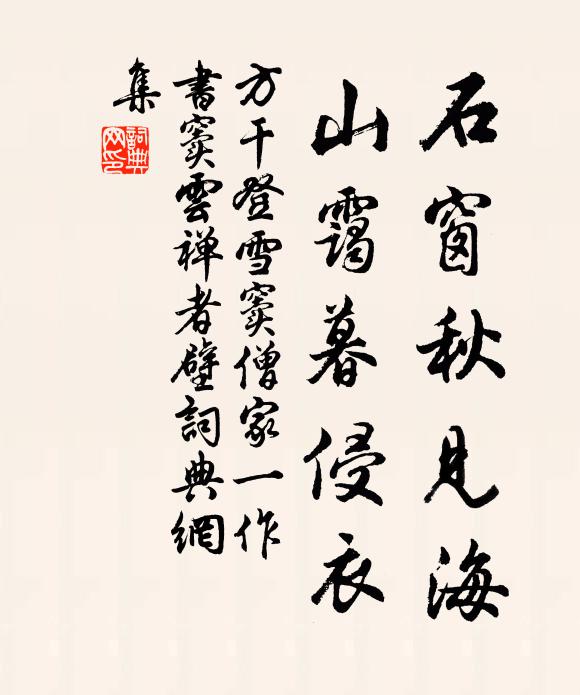 石窗秋見海
山霭暮侵衣
方干登雪窦僧家一作
書窦雲禅者壁詞典網
集
詞典
网印